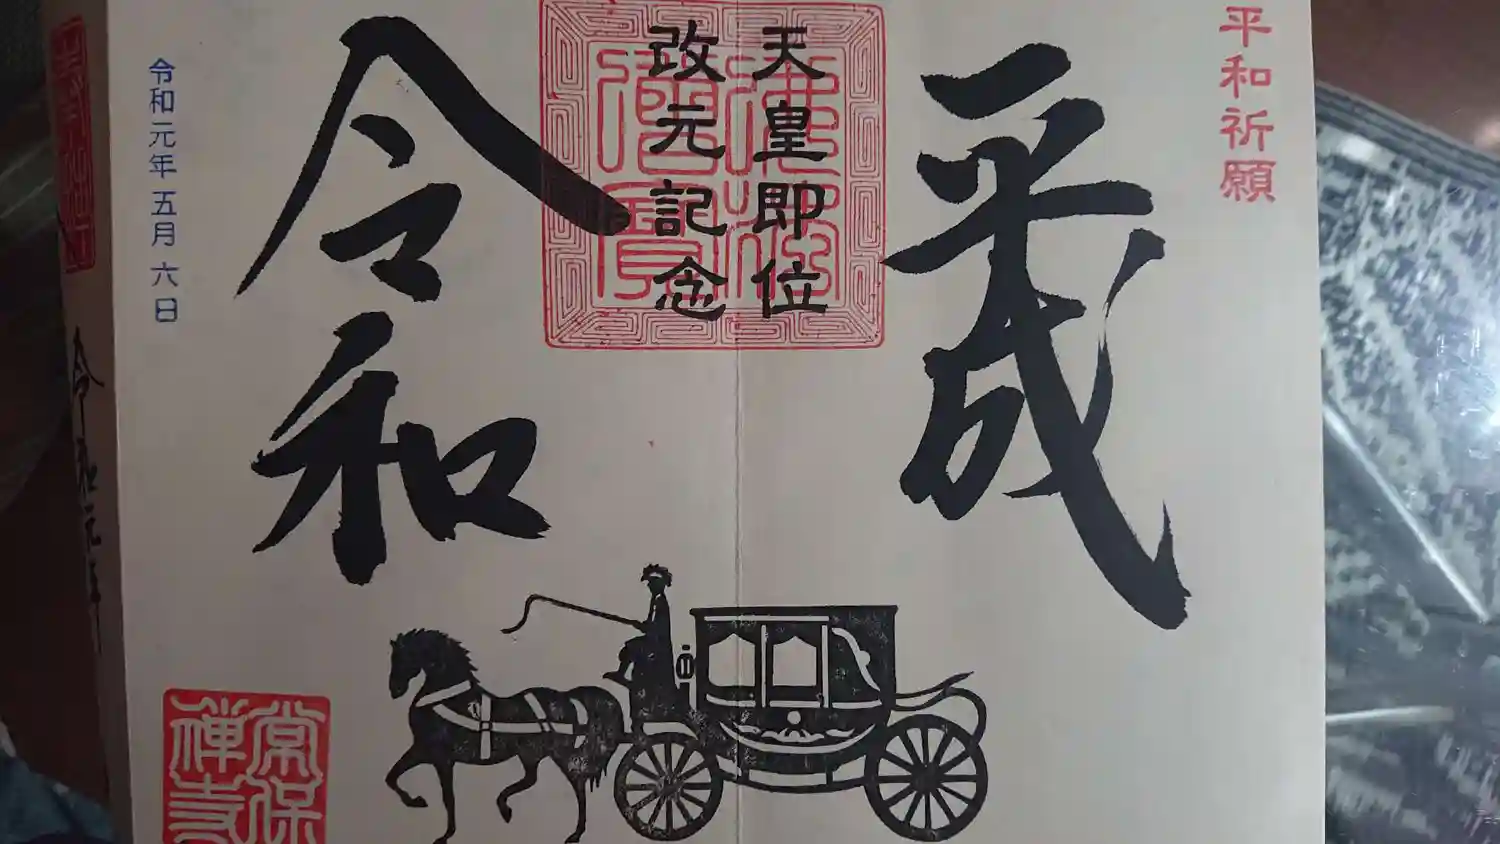 平和祈願
平成
天皇即位
改元記念
佛法僧寶
令和
令和元年五月六日
常保
禅寺